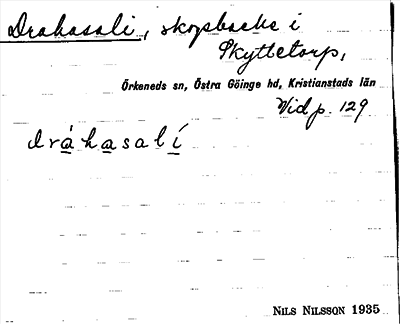 Drakasali, skogsbacke i
Skyttetorp,
Örkeneds sn, Östra Göinge hd, Kristianstads län
Vid p. 129
dràhasalí
NILS NILSSON 1935